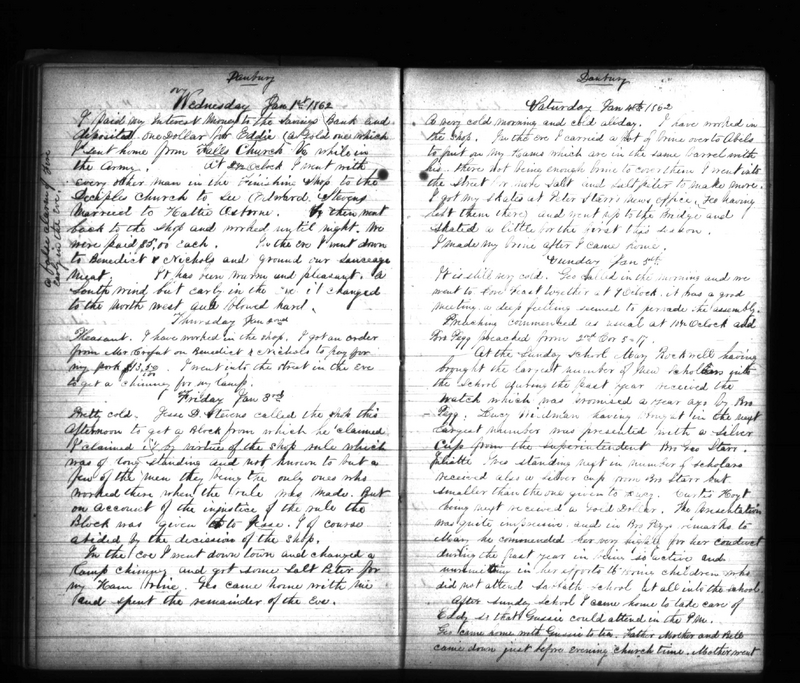 Danbury
Wednesday Jan 1st 1862
I paid my Interest Money to the Savings Bank and
deposited one Dollar for Eddie (a Gold one which
I sent home from Falls Church Va while in
the Army. At Oclock I went with
every other man in the Finishing Shop to the
Deciples Church to see Edward Stevens
Married to Hattie Osborne. then went
back to the shop and worked until night. We
were paid $5,00 each. In the eve I went down
to Benedict & Nichols and ground our sausage
Meat. It has been warm and pleasant. A
South wind but early in the eve it changed
to the North west and blowed hard.
Thursday Jan 2nd
Pleasant. I have worked in the shop. I got an order
from Mr on Benedict & Nichols to pay for
my pork $13,50 I went into the street in the eve
to get a chimney for my lamp.
Friday Jan 3rd
Pretty cold. Jesse D. Stevens called the shop this
afternoon to get a Block from which he claimed.
I claimed it by virtue of the shop rule which
was of long standing and not known to but a
few of the men they being the only ones who
worked there when the rule was made. But
on account of the injustice of the rule the
Block was given to Jesse. I of course
abided by the decission of the shop.
In the Eve I went down town and changed a
Lamp chimney and got some Salt Peter for
my Ham brine. Geo came home with me
and spent the remainder of the Eve.
alarm of Fire
Early in the eve.
Danbury
Saturday Jan 4th 1862
A very cold morning and cold all day. I have worked in
the shop. In the eve I carried a pot of brine over to Abels
to put on my Hams which are in the same barrel with
his. There not being enough brine to cover them I went into
the street for more Salt and Salt Peter to make more.
I got my skates at Peter Starrs news office, Geo having
left them there) and went up to the bridge and
skated a little for the first this season.
I made my brine after I came home.
Sunday Jan 5th
It is still very cold. Geo called in the morning and we
went to Love Feast together at 9 Oclock. it was a good
meeting a deep feeling seemed to pervade the assembly.
Preaching commenced as usual at Oclock and
Bro Pegg preached from 2nd Cor 5-17.
At the Sunday School Mary Rockwell having
brought the largest number of New Scholars into
the School during the past year received the
Watch which was promised a year ago by Bro
Pegg. Lucy Wildman having brought in the next
largest number was presented with a silver
Cup from the superintendent Bro Geo Starr.
Juliette Ives standing next in number of scholars
received also a silver cup from Bro Starr but
smaller than the one given to Lucy. Curtis Hoyt
being next received a Gold Dollar. The Presentation
was quite impressive and in Bro Peggs remarks to
Mary he commended her very highly for her conduct
during the past year in being so active and
unremitting in her efforts to bring children who
did not attend Sabbath School at all into the school.
After Sunday School I came home to take care of
Eddy so that Gussie could attend in the P.M.
Geo came home with Gussie to tea. Father Mother and Bell
came down just before evening church time. Mother went